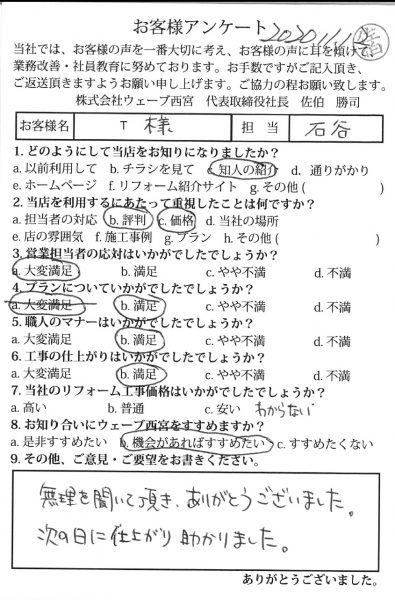 お客様アンケート 2020.11.12
当社では、お客様の声を一番大切に考え、お客様の声に耳を傾けて、
業務改善・社員教育に努めております。お手数ですがご記入頂き、
ご返送頂きますようお願い申し上げます。ご協力の程お願い致します。
株式会社ウェーブ西宮 代表取締役社長 佐伯 勝司
お客様名 T 様 担 当 石谷
1. どのようにして当店をお知りになりましたか?
a. 以前利用して b. チラシを見て c. 知人の紹介 d. 通りがかり
e. ホームページ f. リフォーム紹介サイト g. その他 ( )
2. 当店を利用するにあたって重視したことは何ですか?
a. 担当者の対応 b. 評判 c. 価格 d. 当社の場所
e. 店の雰囲気 f. 施工事例 g. プラン h. その他 ( )
3. 営業担当者の応対はいかがでしたでしょうか?
a. 大変満足 b. 満足 c. やや不満 d. 不満
4. プランについていかがでしたでしょうか?
a. 大変満足 b. 満足 c. やや不満 d. 不満
5. 職人のマナーはいかがでしたでしょうか?
a. 大変満足 b. 満足 c. やや不満 d. 不満
6. 工事の仕上がりはいかがでしたでしょうか?
a. 大変満足 b. 満足 c. やや不満 d. 不満
7. 当社のリフォーム工事価格はいかがでしたでしょうか?
a. 高い b. 普通 c. 安い わからない
8. お知り合いにウェーブ西宮をすすめますか?
a. 是非すすめたい b. 機会があればすすめたい c. すすめたくない
9. その他、ご意見・ご要望をお書きください。
無理を聞いて頂き、ありがとうございました。
次の日に仕上がり助かりました。
ありがとうございました。